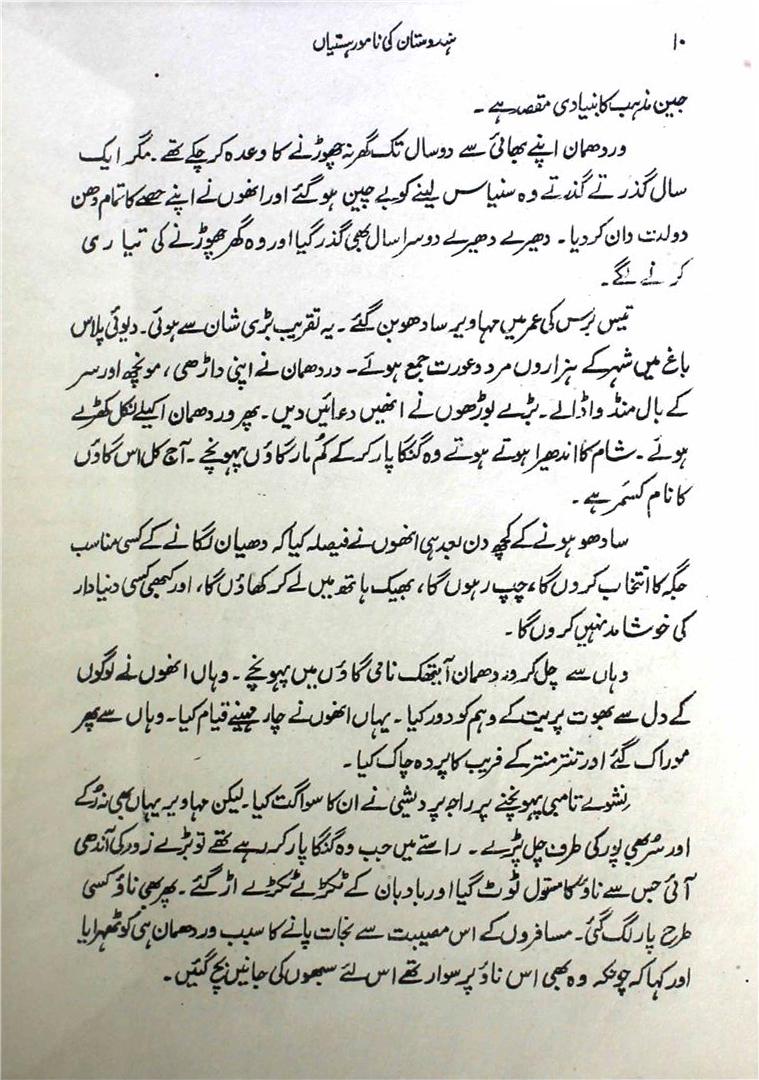 ۱۰
ہندوستان کی نامور ہستیاں
جین مذہب کا بنیادی مقصد ہے ۔
وردھمان اپنے بھائی سے دو سال تک گھر نہ چھوڑنے کا وعدہ کر چکے تھے ۔ مگر ایک
سال گذرتے گذتے وہ سنیاس لینے کو بے چین ہو گئے اور انھوں نے اپنے حصے کا تمام دھن
دولت دان کر دیا ۔ دھیرے دھیرے دوسرا سال بھی گذر گیا اور وہ گھر چھوڑنے کی تیاری
کرنے لگے ۔
تیس برس کی عمر میں مہاویر سادھو بن گئے ۔ یہ تقریب بڑی شان سے ہوئی ۔ دیوئی پلاس
باغ میں شہر کے ہزاروں مرد و عورت جمع ہوئے ۔ وردھمان نے اپنی داڑھی ، مونچھ اور سر
کے بال منڈوا ڈالے ۔ بڑے بوڑھوں نے انھیں دعائیں دیں ۔ پھر وردھمان اکیلے نکل کھڑے
ہوئے ۔ شام کا اندھیرا ہوتے ہوتے وہ گنگا پار کر کے کُم مار گاؤں پہونچے ۔ آج کل اس گاؤں
کا نام کسمَر ہے ۔
سادھو ہونے کے کچھ دن بعد ہی انھوں نے فیصلہ کیا کہ دھیان لگانے کے کسی مناسب
جگہ کا انتخاب کروں گا ، چپ رہوں گا ، بھیک ہاتھ میں لے کر کھاؤں گا ، اور کبھی کسی دنیا دار
کی خوشامد نہیں کروں گا ۔
وہاں سے چل کر وردھمان آیتھک نامی گاؤں میں پہونچے ۔ وہاں انھوں نے لوگوں
کے دل سے بھوت پریت کے وہم کو دور کیا ۔ یہاں انھوں نے چار مہینے قیام کیا ۔ وہاں سے پھر
موراک گئے اور تنتر منتر کے فریب کا پردہ چاک کیا ۔
نشوے تامبی پہونچنے پر راجہ پردیشی نے ان کا سواگت کیا ۔ لیکن مہاویر یہاں بھی نہ رُکے
اور سُربھی پور کی طرف چل پڑے ۔ راستے میں جب وہ گنگا پار کر رہے تھے تو بڑے زور کی آندھی
آئی جس سے ناؤ کا مستول ٹوٹ گیا اور بادبان کے ٹکڑے ٹکڑے اڑ گئے ۔ پھر بھی ناؤ کسی
طرح پار لگ گئی ۔ مسافروں کے اس مصیبت سے نجات پانے کا سبب وردھمان ہی کو ٹھہرایا
اور کہا کہ چونکہ وہ بھی اس ناؤ پر سوار تھے اس لئے سبھوں کی جانیں بچ گئیں ۔